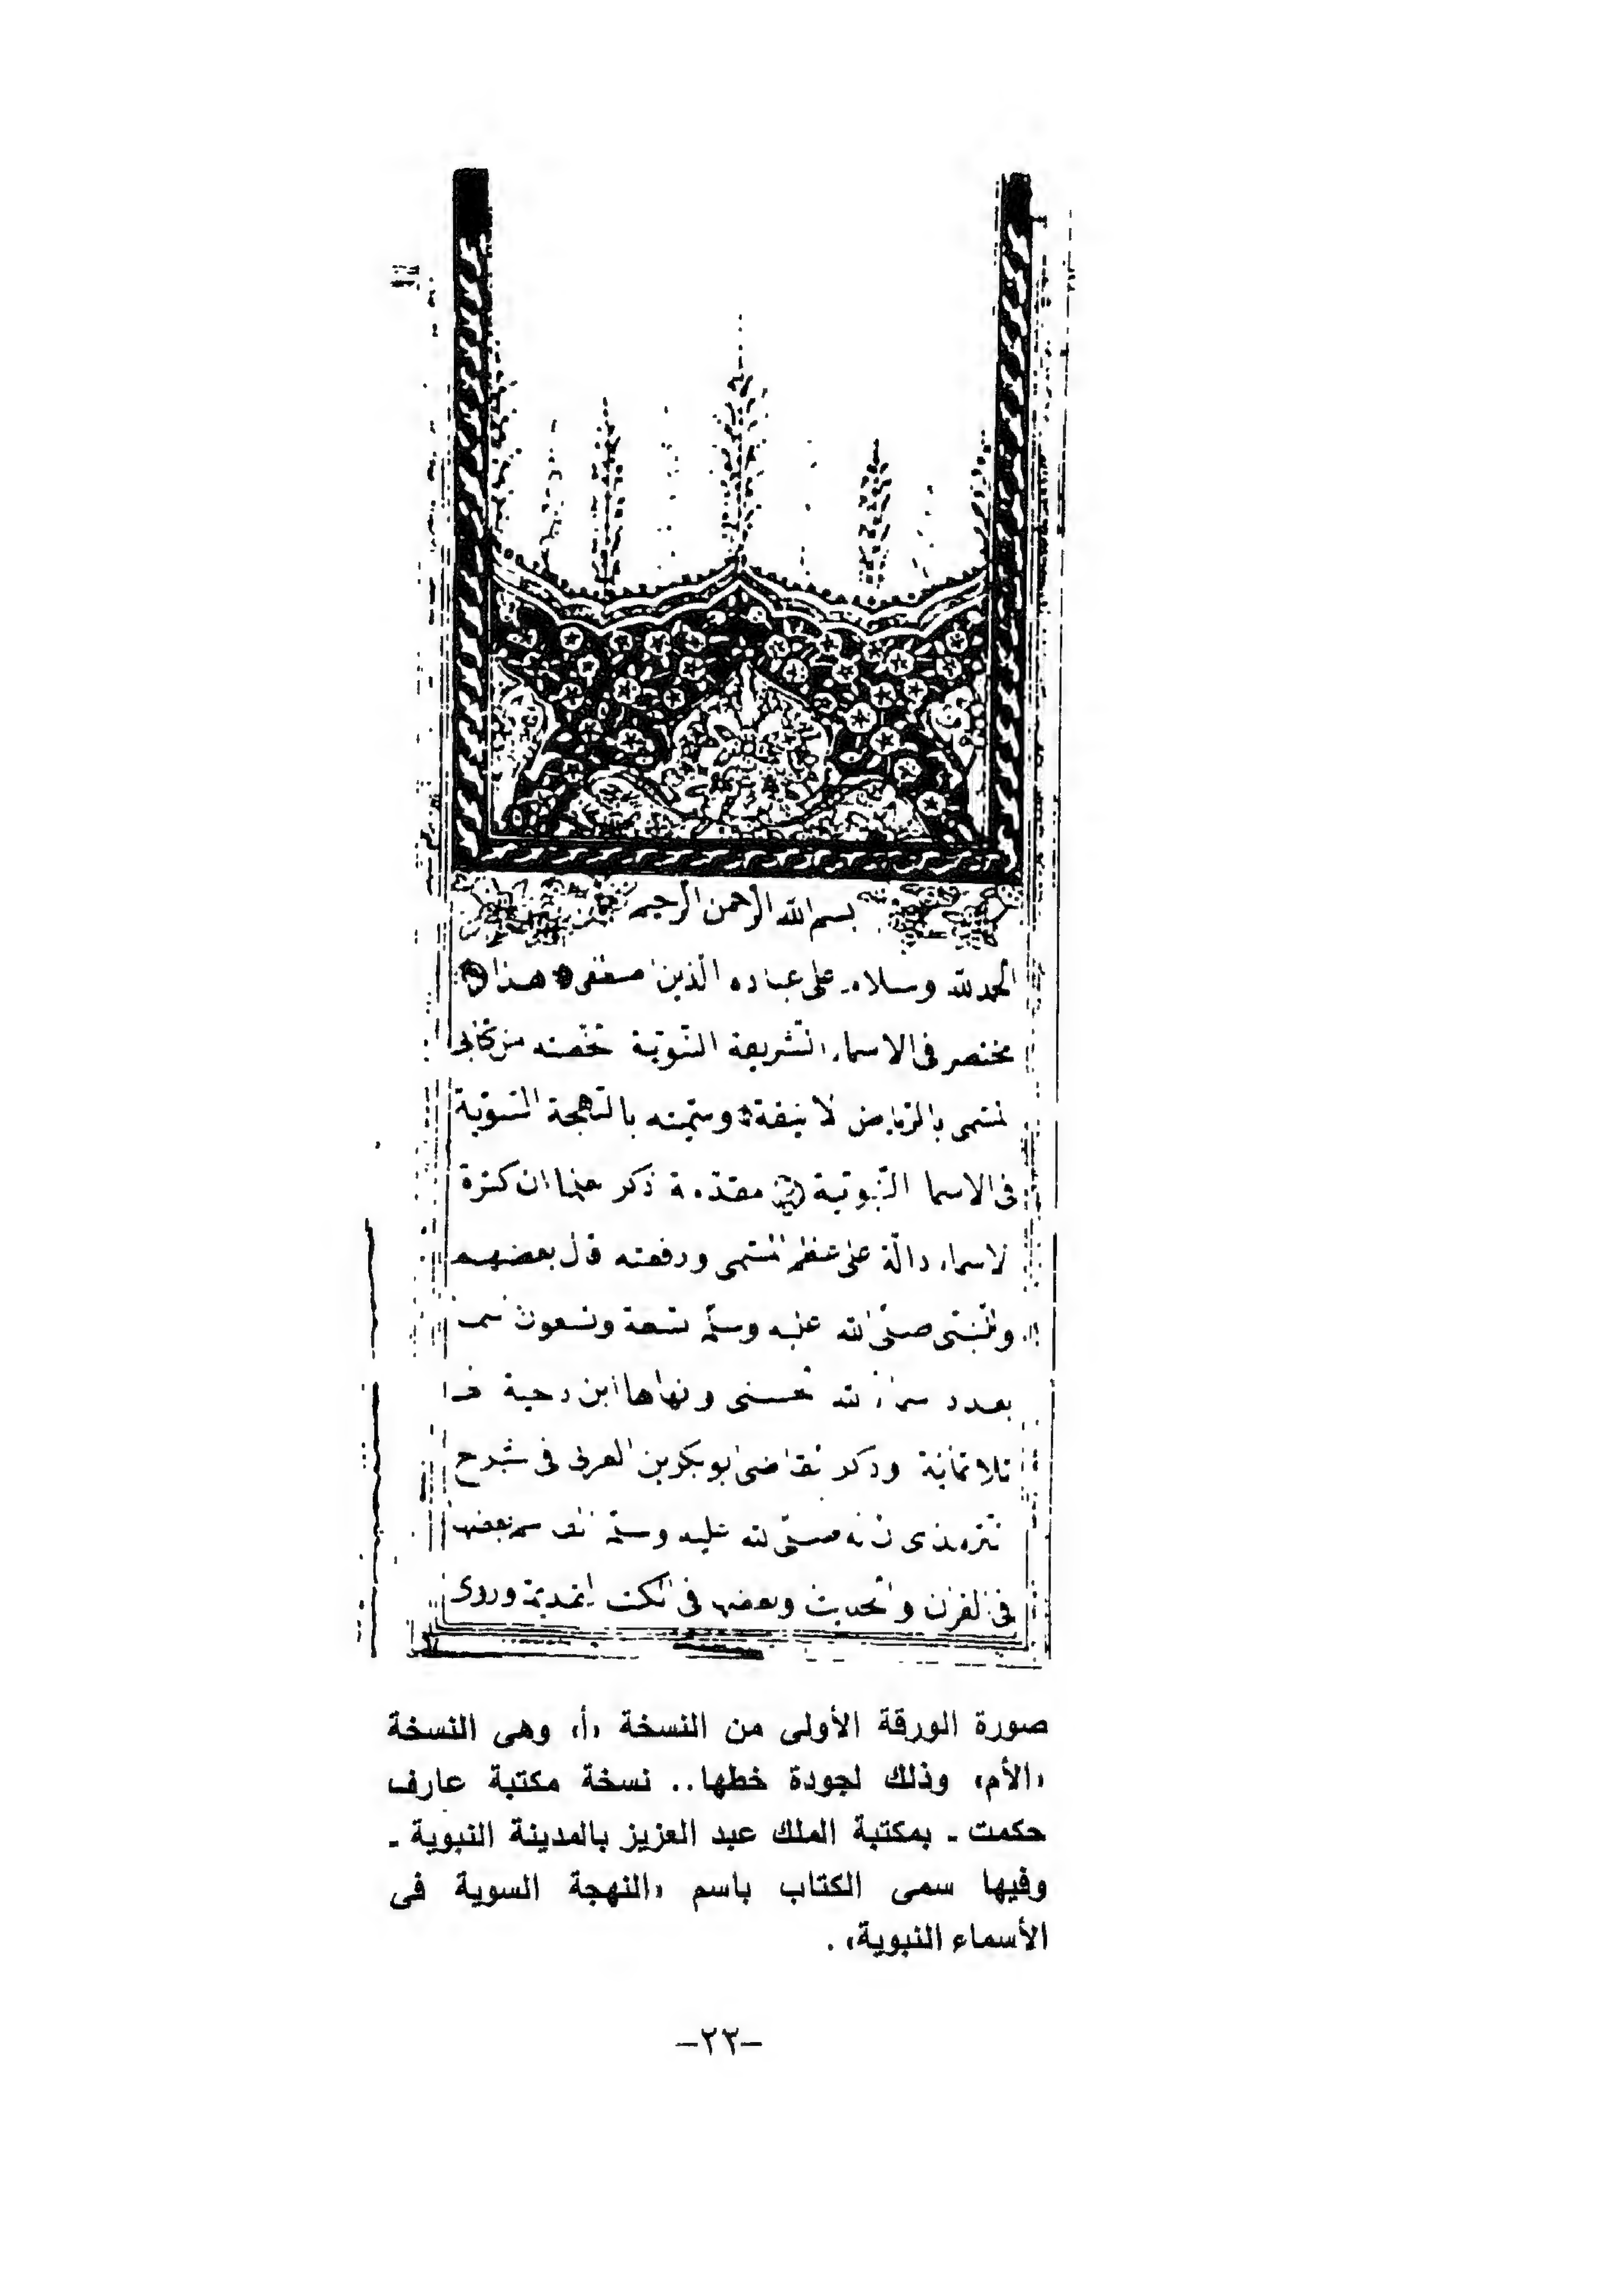 بسم الله الرحمن الرحيم
الحمد لله وسلام على عباده الذين اصطفى هذا
مختصر في الاسماء الشريفة النبوية لخصته من كتابى
المسمى بالرياض الانيقة وسميته بالنهجة السوية
في الاسما النبوية مقدمة ذكر علما ان كثرة
الاسماء دالة على عظم المسمى ورفعته قال بعضهم
وللنبى صلى الله عليه وسلم تسعة وتسعون اسما
بعدد اسماء الله الحسنى وانهاها ابن دحية الى
ثلاثمائة وذكر القاضى ابو بكر بن العربى في شرح
الترمذى ان له صلى الله عليه وسلم الف اسم بعضها
في القرآن والحديث وبعضها في الكتب القديمة وروى
صورة الورقة الأولى من النسخة «أ» وهى النسخة
«الأم» وذلك لجودة خطها.. نسخة مكتبة عارف
حكمت ـ بمكتبة الملك عبد العزيز بالمدينة النبوية ـ
وفيها سمى الكتاب باسم «النهجة السوية فى
الأسماء النبوية» .
–٢٣–